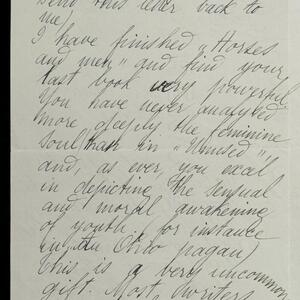 send this letter back to
me.
I have finished "Horses
and men" and find your
last book very powerful.
You have never analysed
more deeply the feminine
soul than in "Unused",
and, as ever, you excel
in depicting the sensual
and moral awakening
of youth (for instance
in the Ohio pagan)
This is a very uncommon
gift. Most writers